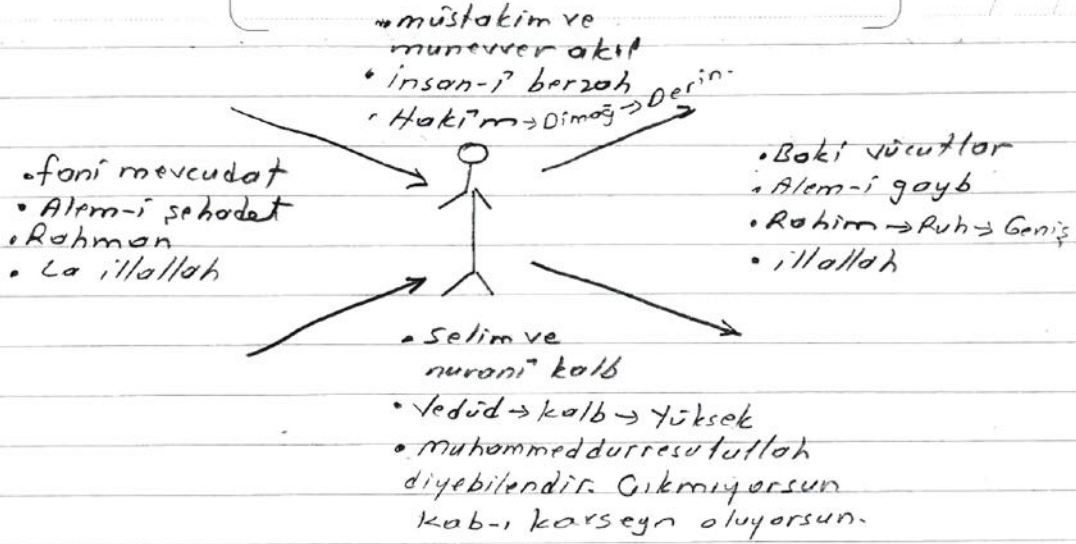 • müstakim ve
munevver akıl
• insan-î berzah
• Hakîm → Dimağ → Derin.
• fani mevcudat
• Alem-i şehadet
• Rahman
• La illallah
• Baki vücutlar
• Alem-i gayb
• Rahim → Ruh → Geniş
• illallah
• Selim ve
nuranî kalb
• Vedûd → kalb → Yüksek
• Muhammeddurresulullah
diyebilendir. Çıkmıyorsun
Kab-ı kavseyn oluyorsun.